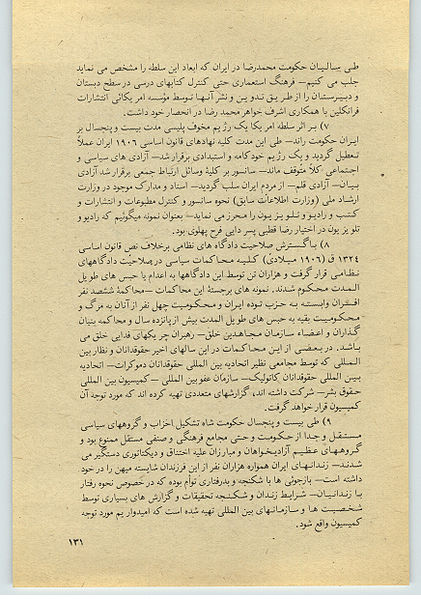 طـی سـالـیـان حکومت محمدرضا در ایران که ابعاد این سلطه را مشخص می نماید
جلب می کنیم — فرهنگ استعماری حتی کنترل کتابهای درسی در سطح دبستان
و دبیـرسـتـان را از طـریـق تـدویـن و نشر آنـهـا تـوسط مؤسسه امریکائی انتشارات
فرانکلین با همکاری اشرف خواهر محمد رضا در انحصار خود داشت.
۷) بـر اثر سلطه امریکا یک رژیم مخوف پلیسی مدت بیست و پنجسال بر
ایـران حکومت راند — طی این مدت کلیه نهادهای قانون اساسی ۱۹۰۶ ایران عملاً
تـعطیل گردید و یک رژیم خودکامه و استبدادی برقرار شد — آزادی های سیاسی و
اجتماعی کلاً متوقف ماند — سانسور بر کلیۀ وسائل ارتباط جمعی برقرار شد آزادی
بـیـان — آزادی قلم — از مردم ایران سلب گردید — اسناد و مدارک موجود در وزارت
ارشـاد ملی (وزارت اطلاعات سابق) نحوه سانسور و کنترل مطبوعات و انتشارات و
کتـب و رادیـو و تـلـویـز یـون را محـرز می نماید — بعنوان نمونه میگوئیم که رادیو و
تلو یز یون در اختیار رضا قطبی پسر دایی فرح پهلوی بود.
۸) بـا گـسـتـرش صلاحیت دادگاه های نظامی برخلاف نص قانون اساسی
۱۳۲۴ ق (۱۹۰۶ میـلادی) کـلـیـه محاکمات سیاسی در صلاحیت دادگاههای
نـظـامـی قرار گرفت و هزاران تن توسط این دادگاهها به اعدام یا حبس های طویل
الـمـدت محـکوم شـدنـد. نمونه های برجستۀ این محاکمات — محاکمۀ ششصد نفر
افـسـران وابستـه بـه حزب توده ایران و محکومیت چهل نفر از آنان به مرگ و
محکومـیـت بقیه به حبس های طویل المدت بیش از پانزده سال و محاکمه بنیان
گـذاران و اعضـاء سـازمان مجـاهـدین خلق — رهبران چریکهای فدایی خلق می
باشـد. در بـعضی از ایـن محاکمات در این سالهای اخیر حقوقدانان و نظار بین
الـمـللی که توسط مجامعی نظیر اتحادیه بین المللی حقوقدانان دموکرات — اتحادیه
بیـن المللی حقوقدانان کاتولیک — سازمان عفو بین المللی — کمیسیون بین المللی
حقوق بشر — شرکت داشته اند، گزارشهای متعددی تهیه کرده اند که مورد توجه آن
کمیسیون قرار خواهد گرفت.
۹) طی بیست و پنجسال حکومت شاه تشکیل احزاب و گروههای سیاسی
مستـقـل و جـدا از حکـومت و حتی مجامع فرهنگی و صنفی مستقل ممنوع بود و
گروههـای عظـیـم آزادیـخـواهـان و مبارزان علیه اختناق و دیکتاتوری دستگیر می
شـدنـد — زنـدانـهـای ایران همواره هزاران نفر از این فرزندان شایسته میهن را در خود
داشته است — بازجوئی ها با شکنجه و بدرفتاری توأم بوده که در خصوص نحوه رفتار
بـا زنـدانـیـان — شـرایـط زنـدان و شکـنـجـه تحقیقات و گزارش های بسیاری توسط
شـخـصـیـت هـا و سـازمـانـهـای بین المللی تهیه شده است که امیدوار یم مورد توجه
کمیسیون واقع شود.
۱۳۱